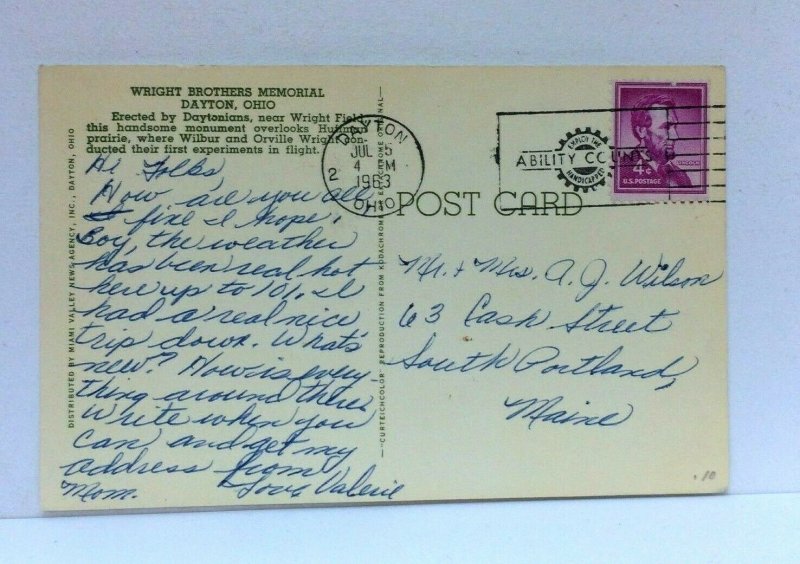 WRIGHT BROTHERS MEMORIAL
DAYTON, OHIO
Erected by Daytonians, near Wright Field
this handsome monument overlooks Huffman
prairie, where Wilbur and Orville Wright con-
ducted their first experiments in flight.
DISTRIBUTED BY MIAMI VALLEY NEWS AGENCY, INC., DAYTON, OHIO
Hi Folks,
How are you all
fine I hope.
Boy, the weather
has been real hot
here up to 101. I
had a real nice
trip down. Whats
new? How is every-
thing around there
Write when you
can and get my
address from
Mom. Love Valerie
CURTEICHCOLOR REPRODUCTION FROM KODACHROME OR EKTACHROME ORIGINAL
DAYTON
JUL
4 PM
2
1963
OHIO
ABILITY COUNTS
EMPLOY THE
HANDICAPPED
LINCOLN
4¢
U.S. POSTAGE
POST CARD
Mr. + Mrs. A. J. Wilson
63 Cash Street
South Portland,
Maine
.10